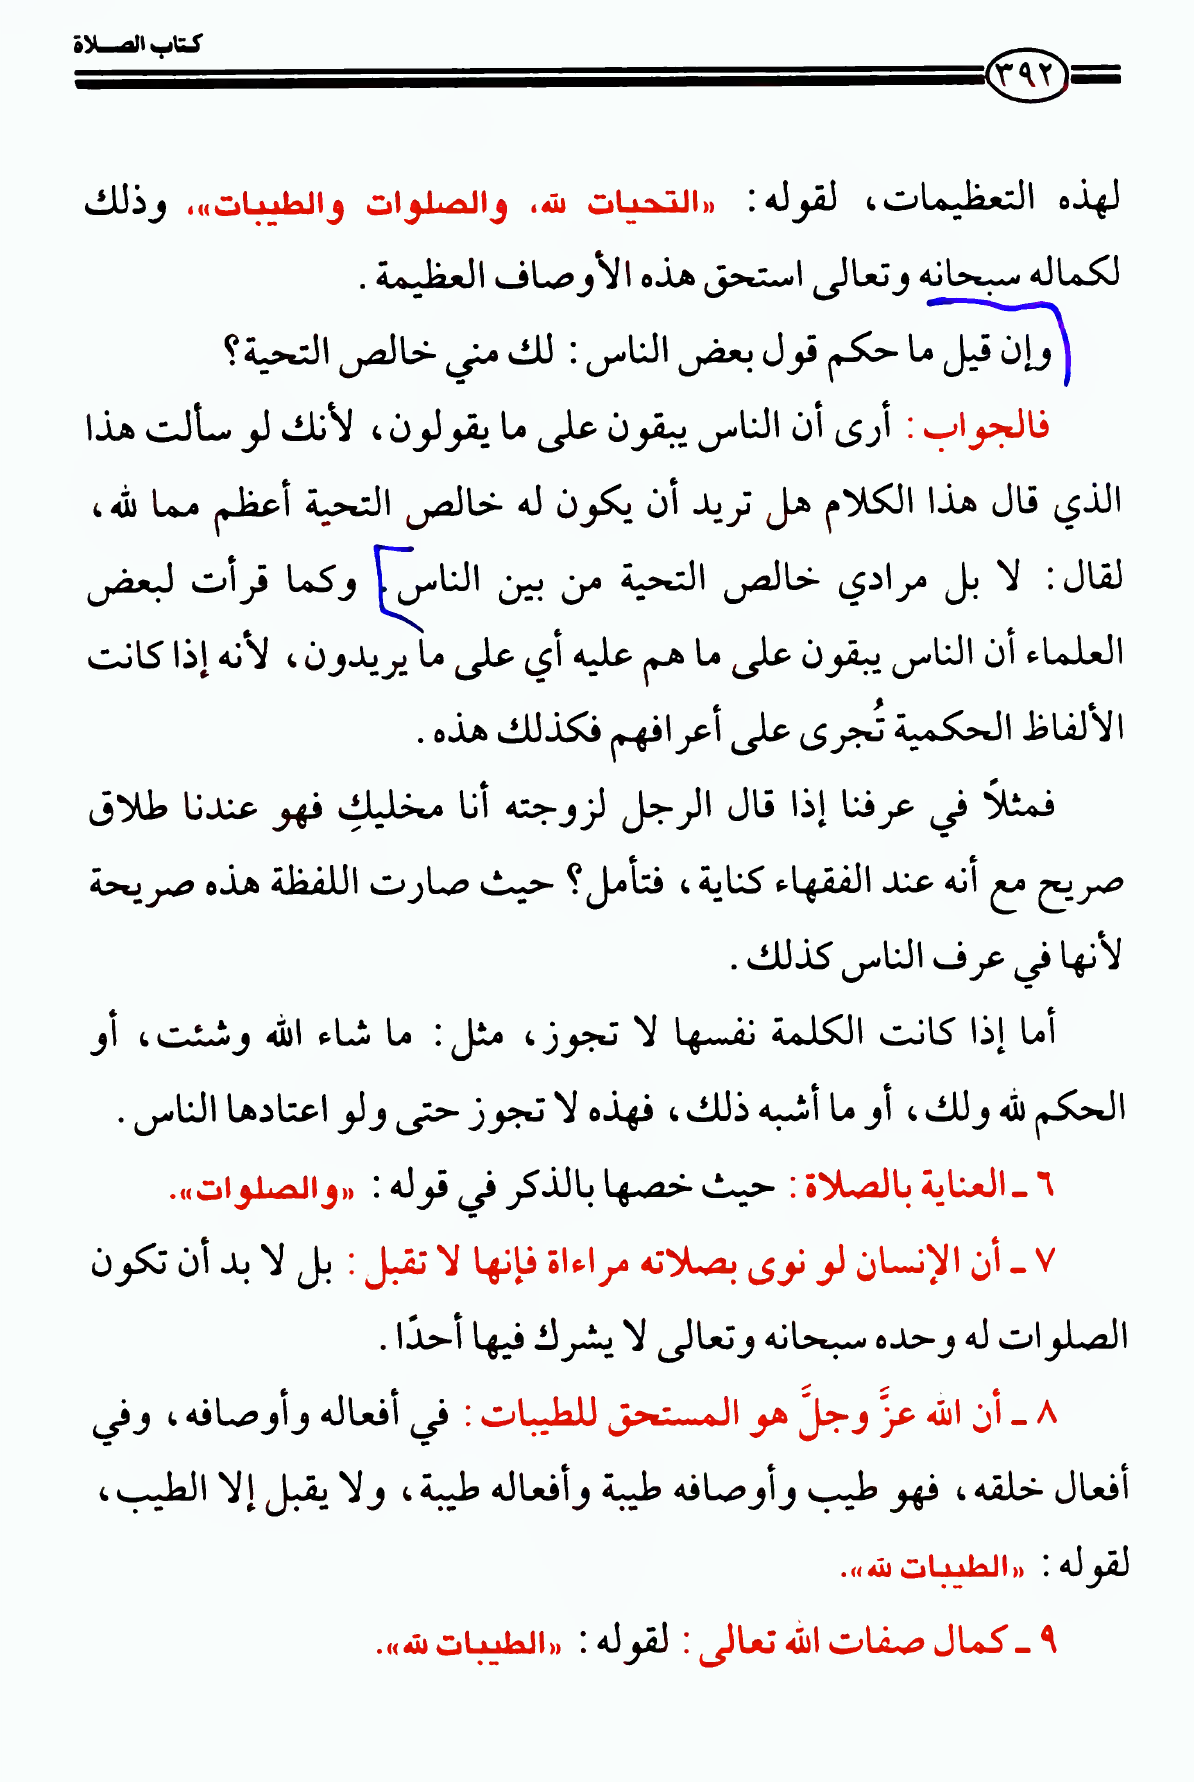 كتاب الصلاة
٣٩٢
لهذه التعظيمات، لقوله: «التحيات لله، والصلوات والطيبات»، وذلك
لكماله سبحانه وتعالى استحق هذه الأوصاف العظيمة.
وإن قيل ما حكم قول بعض الناس: لك مني خالص التحية؟
فالجواب: أرى أن الناس يبقون على ما يقولون، لأنك لو سألت هذا
الذي قال هذا الكلام هل تريد أن يكون له خالص التحية أعظم مما لله،
لقال: لا بل مرادي خالص التحية من بين الناس. وكما قرأت لبعض
العلماء أن الناس يبقون على ما هم عليه أي على ما يريدون، لأنه إذا كانت
الألفاظ الحكمية تُجرى على أعرافهم فكذلك هذه.
فمثلاً في عرفنا إذا قال الرجل لزوجته أنا مخليكِ فهو عندنا طلاق
صريح مع أنه عند الفقهاء كناية، فتأمل؟ حيث صارت اللفظة هذه صريحة
لأنها في عرف الناس كذلك.
أما إذا كانت الكلمة نفسها لا تجوز، مثل: ما شاء الله وشئت، أو
الحكم لله ولك، أو ما أشبه ذلك، فهذه لا تجوز حتى ولو اعتادها الناس.
٦ ـ العناية بالصلاة: حيث خصها بالذكر في قوله: «والصلوات».
٧ ـ أن الإنسان لو نوى بصلاته مراءاة فإنها لا تقبل: بل لا بد أن تكون
الصلوات له وحده سبحانه وتعالى لا يشرك فيها أحدًا.
٨ ـ أن الله عزَّ وجلَّ هو المستحق للطيبات: في أفعاله وأوصافه، وفي
أفعال خلقه، فهو طيب وأوصافه طيبة وأفعاله طيبة، ولا يقبل إلا الطيب،
لقوله: «الطيبات لله».
٩ ـ كمال صفات الله تعالى: لقوله: «الطيبات لله».